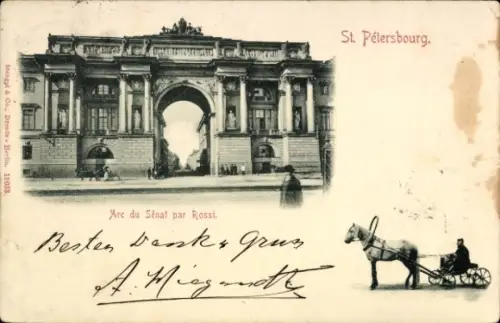 St. Pétersbourg.
Stengel & Co., Dresde - Berlin. 11053.
Arc du Sénat par Rossi.
Besten Dank & Gruss
A. Wiegandt